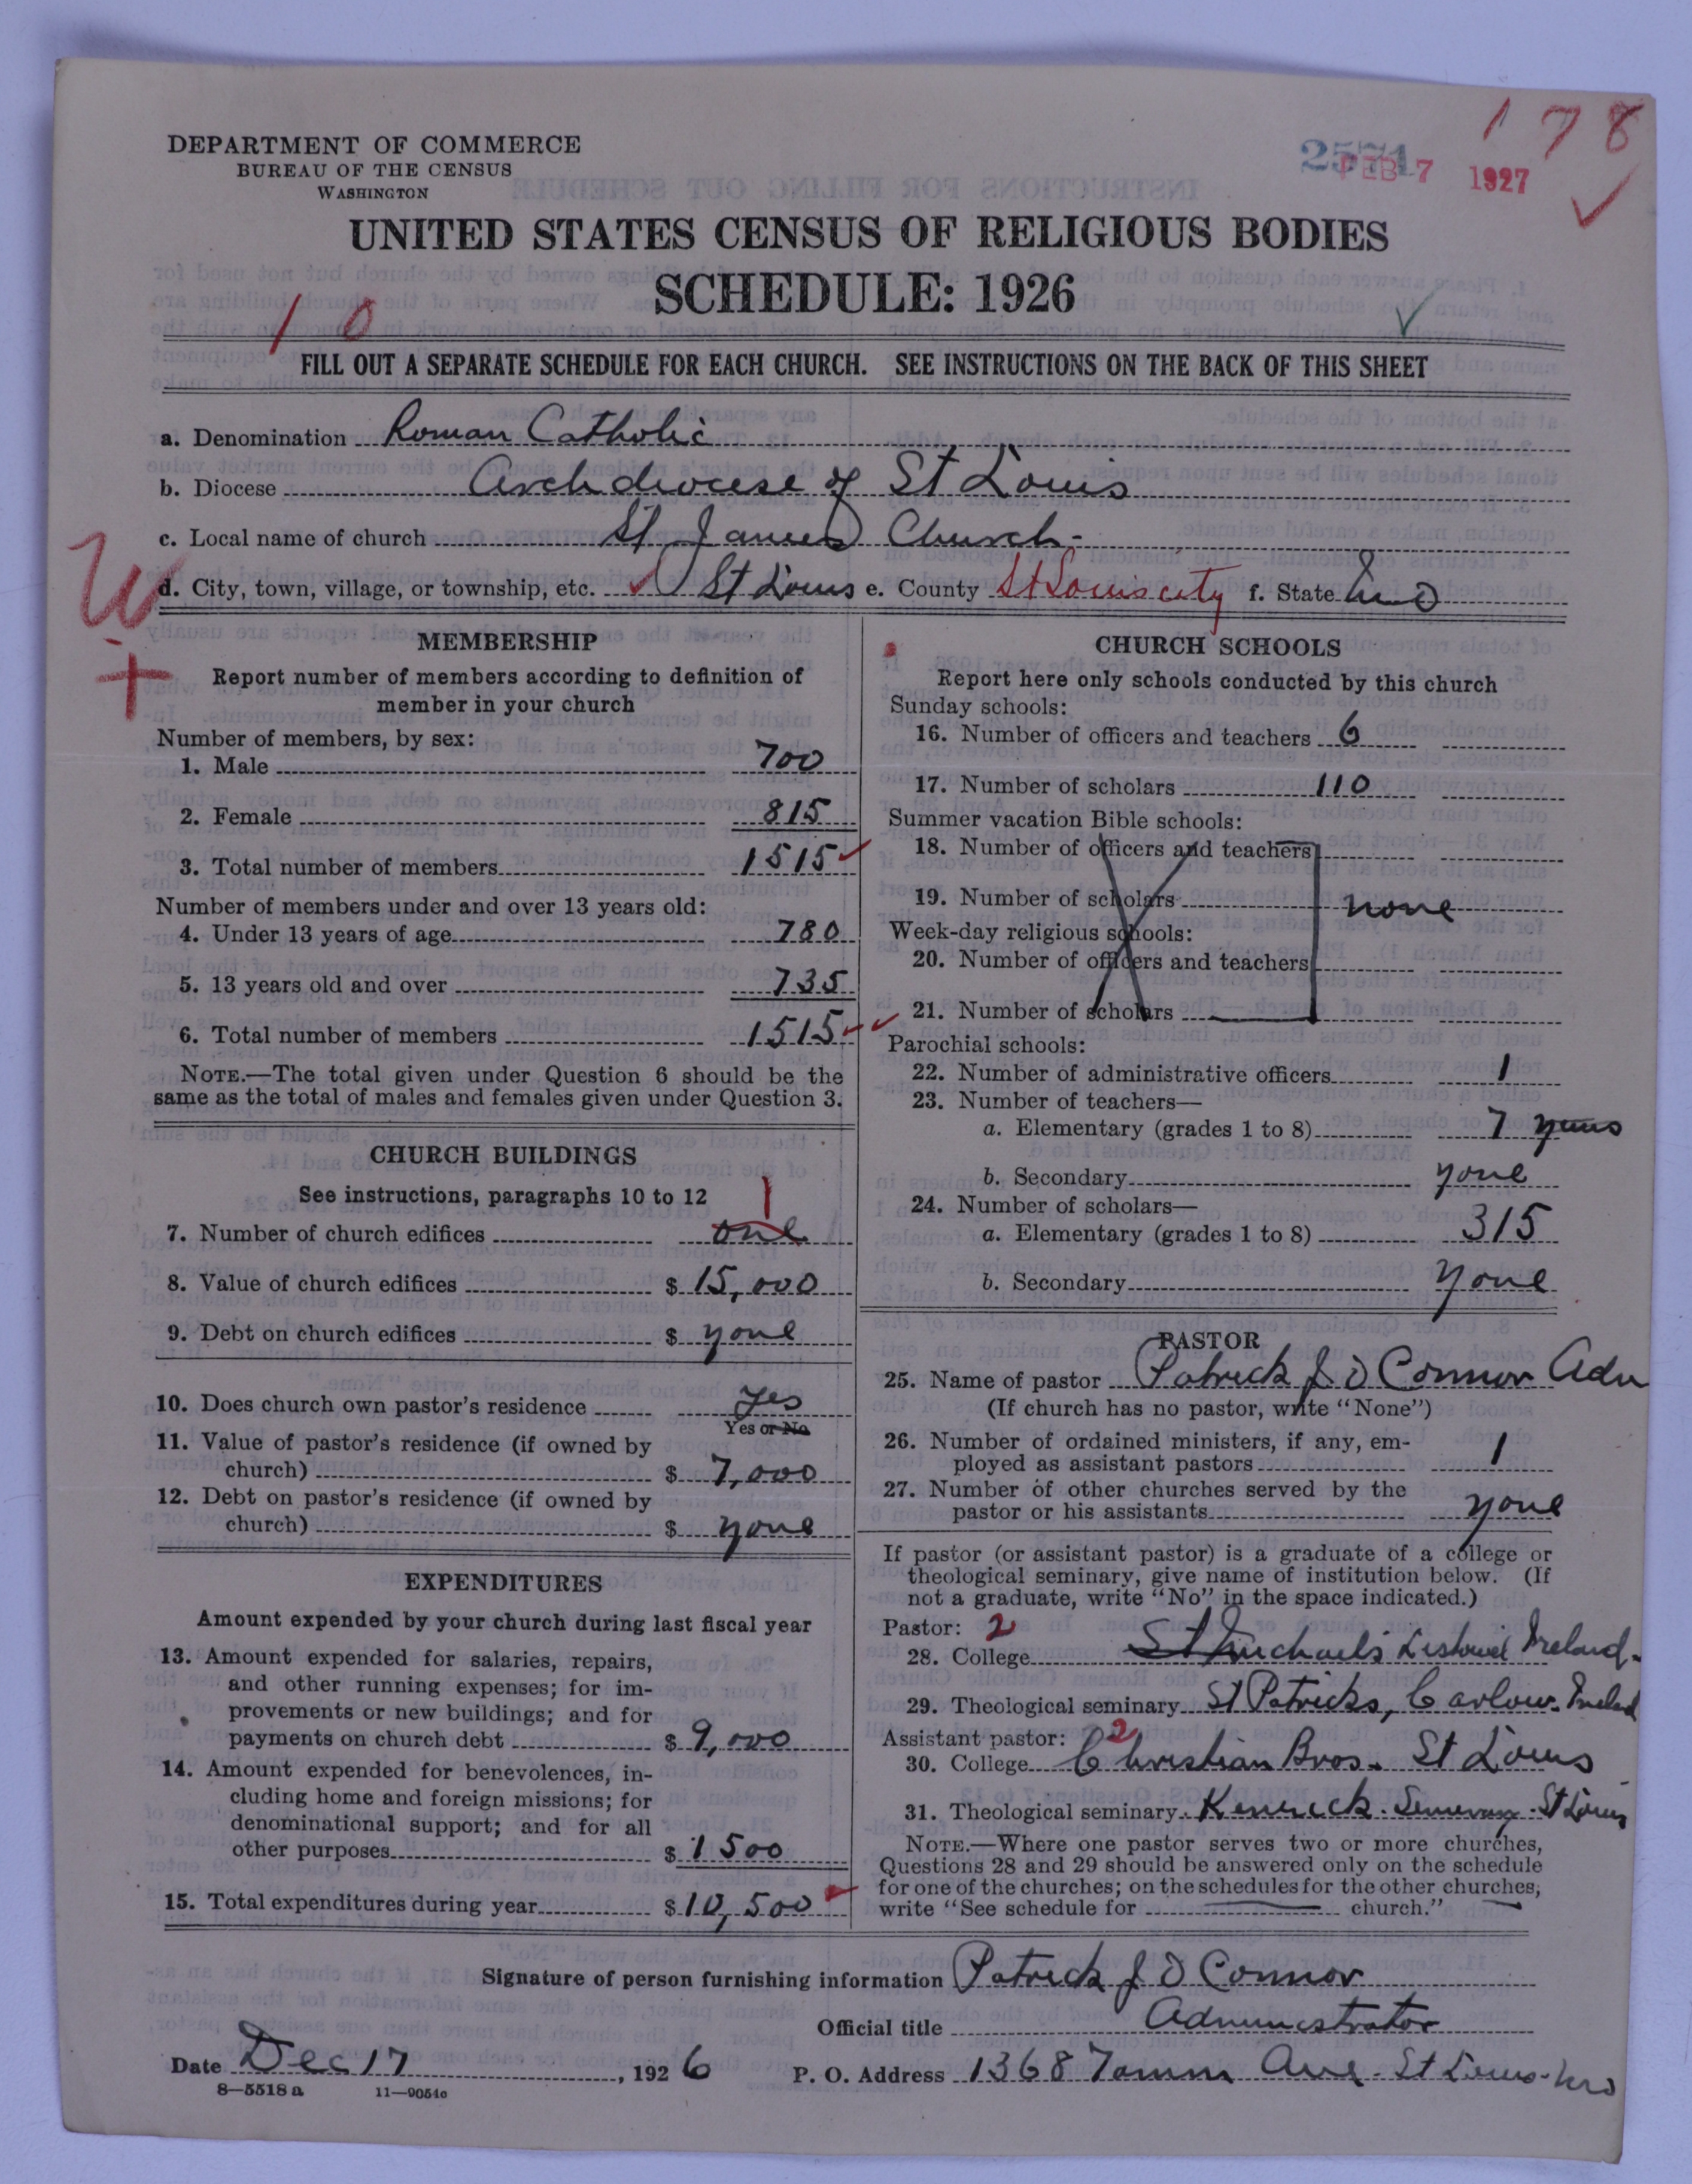 1 7 8
DEPARTMENT OF COMMERCE
BUREAU OF THE CENSUS
WASHINGTON
2571
FEB 7 1927
UNITED STATES CENSUS OF RELIGIOUS BODIES
SCHEDULE: 1926
1 0
FILL OUT A SEPARATE SCHEDULE FOR EACH CHURCH. SEE INSTRUCTIONS ON THE BACK OF THIS SHEET
a. Denomination Roman Catholic
b. Diocese Archdiocese of St Louis
c. Local name of church St James Church
d. City, town, village, or township, etc. St Louis e. County St Louis city f. State Mo
W
+
MEMBERSHIP
Report number of members according to definition of
member in your church
Number of members, by sex:
1. Male 700
2. Female 815
3. Total number of members 1515
Number of members under and over 13 years old:
4. Under 13 years of age 780
5. 13 years old and over 735
6. Total number of members 1515
NOTE.—The total given under Question 6 should be the
same as the total of males and females given under Question 3.
CHURCH BUILDINGS
See instructions, paragraphs 10 to 12
1
7. Number of church edifices one
8. Value of church edifices $ 15,000
9. Debt on church edifices $ none
10. Does church own pastor's residence yes
Yes or No
11. Value of pastor's residence (if owned by
church) $ 7,000
12. Debt on pastor's residence (if owned by
church) $ none
EXPENDITURES
Amount expended by your church during last fiscal year
13. Amount expended for salaries, repairs,
and other running expenses; for im-
provements or new buildings; and for
payments on church debt $ 9,000
14. Amount expended for benevolences, in-
cluding home and foreign missions; for
denominational support; and for all
other purposes $ 1500
15. Total expenditures during year $ 10,500
CHURCH SCHOOLS
Report here only schools conducted by this church
Sunday schools:
16. Number of officers and teachers 6
17. Number of scholars 110
Summer vacation Bible schools:
18. Number of officers and teachers
19. Number of scholars none
Week-day religious schools:
20. Number of officers and teachers
21. Number of scholars
Parochial schools:
22. Number of administrative officers 1
23. Number of teachers—
a. Elementary (grades 1 to 8) 7
b. Secondary none
24. Number of scholars—
a. Elementary (grades 1 to 8) 315
b. Secondary none
PASTOR
25. Name of pastor Patrick J O Connor Adm
(If church has no pastor, write "None")
26. Number of ordained ministers, if any, em-
ployed as assistant pastors 1
27. Number of other churches served by the
pastor or his assistants none
If pastor (or assistant pastor) is a graduate of a college or
theological seminary, give name of institution below. (If
not a graduate, write "No" in the space indicated.)
Pastor: 2
28. College St Michaels Listowel Ireland
29. Theological seminary St Patricks, Carlow. Ireland
Assistant pastor: 2
30. College Christian Bros. St Louis
31. Theological seminary Kenrick Seminary St Louis
NOTE.—Where one pastor serves two or more churches,
Questions 28 and 29 should be answered only on the schedule
for one of the churches; on the schedules for the other churches,
write "See schedule for church."
Signature of person furnishing information Patrick J O Connor
Official title Administrator
Date Dec 17, 1926 P. O. Address 1368 Tamm Ave. St Louis Mo
8—5518 a 11—9051c